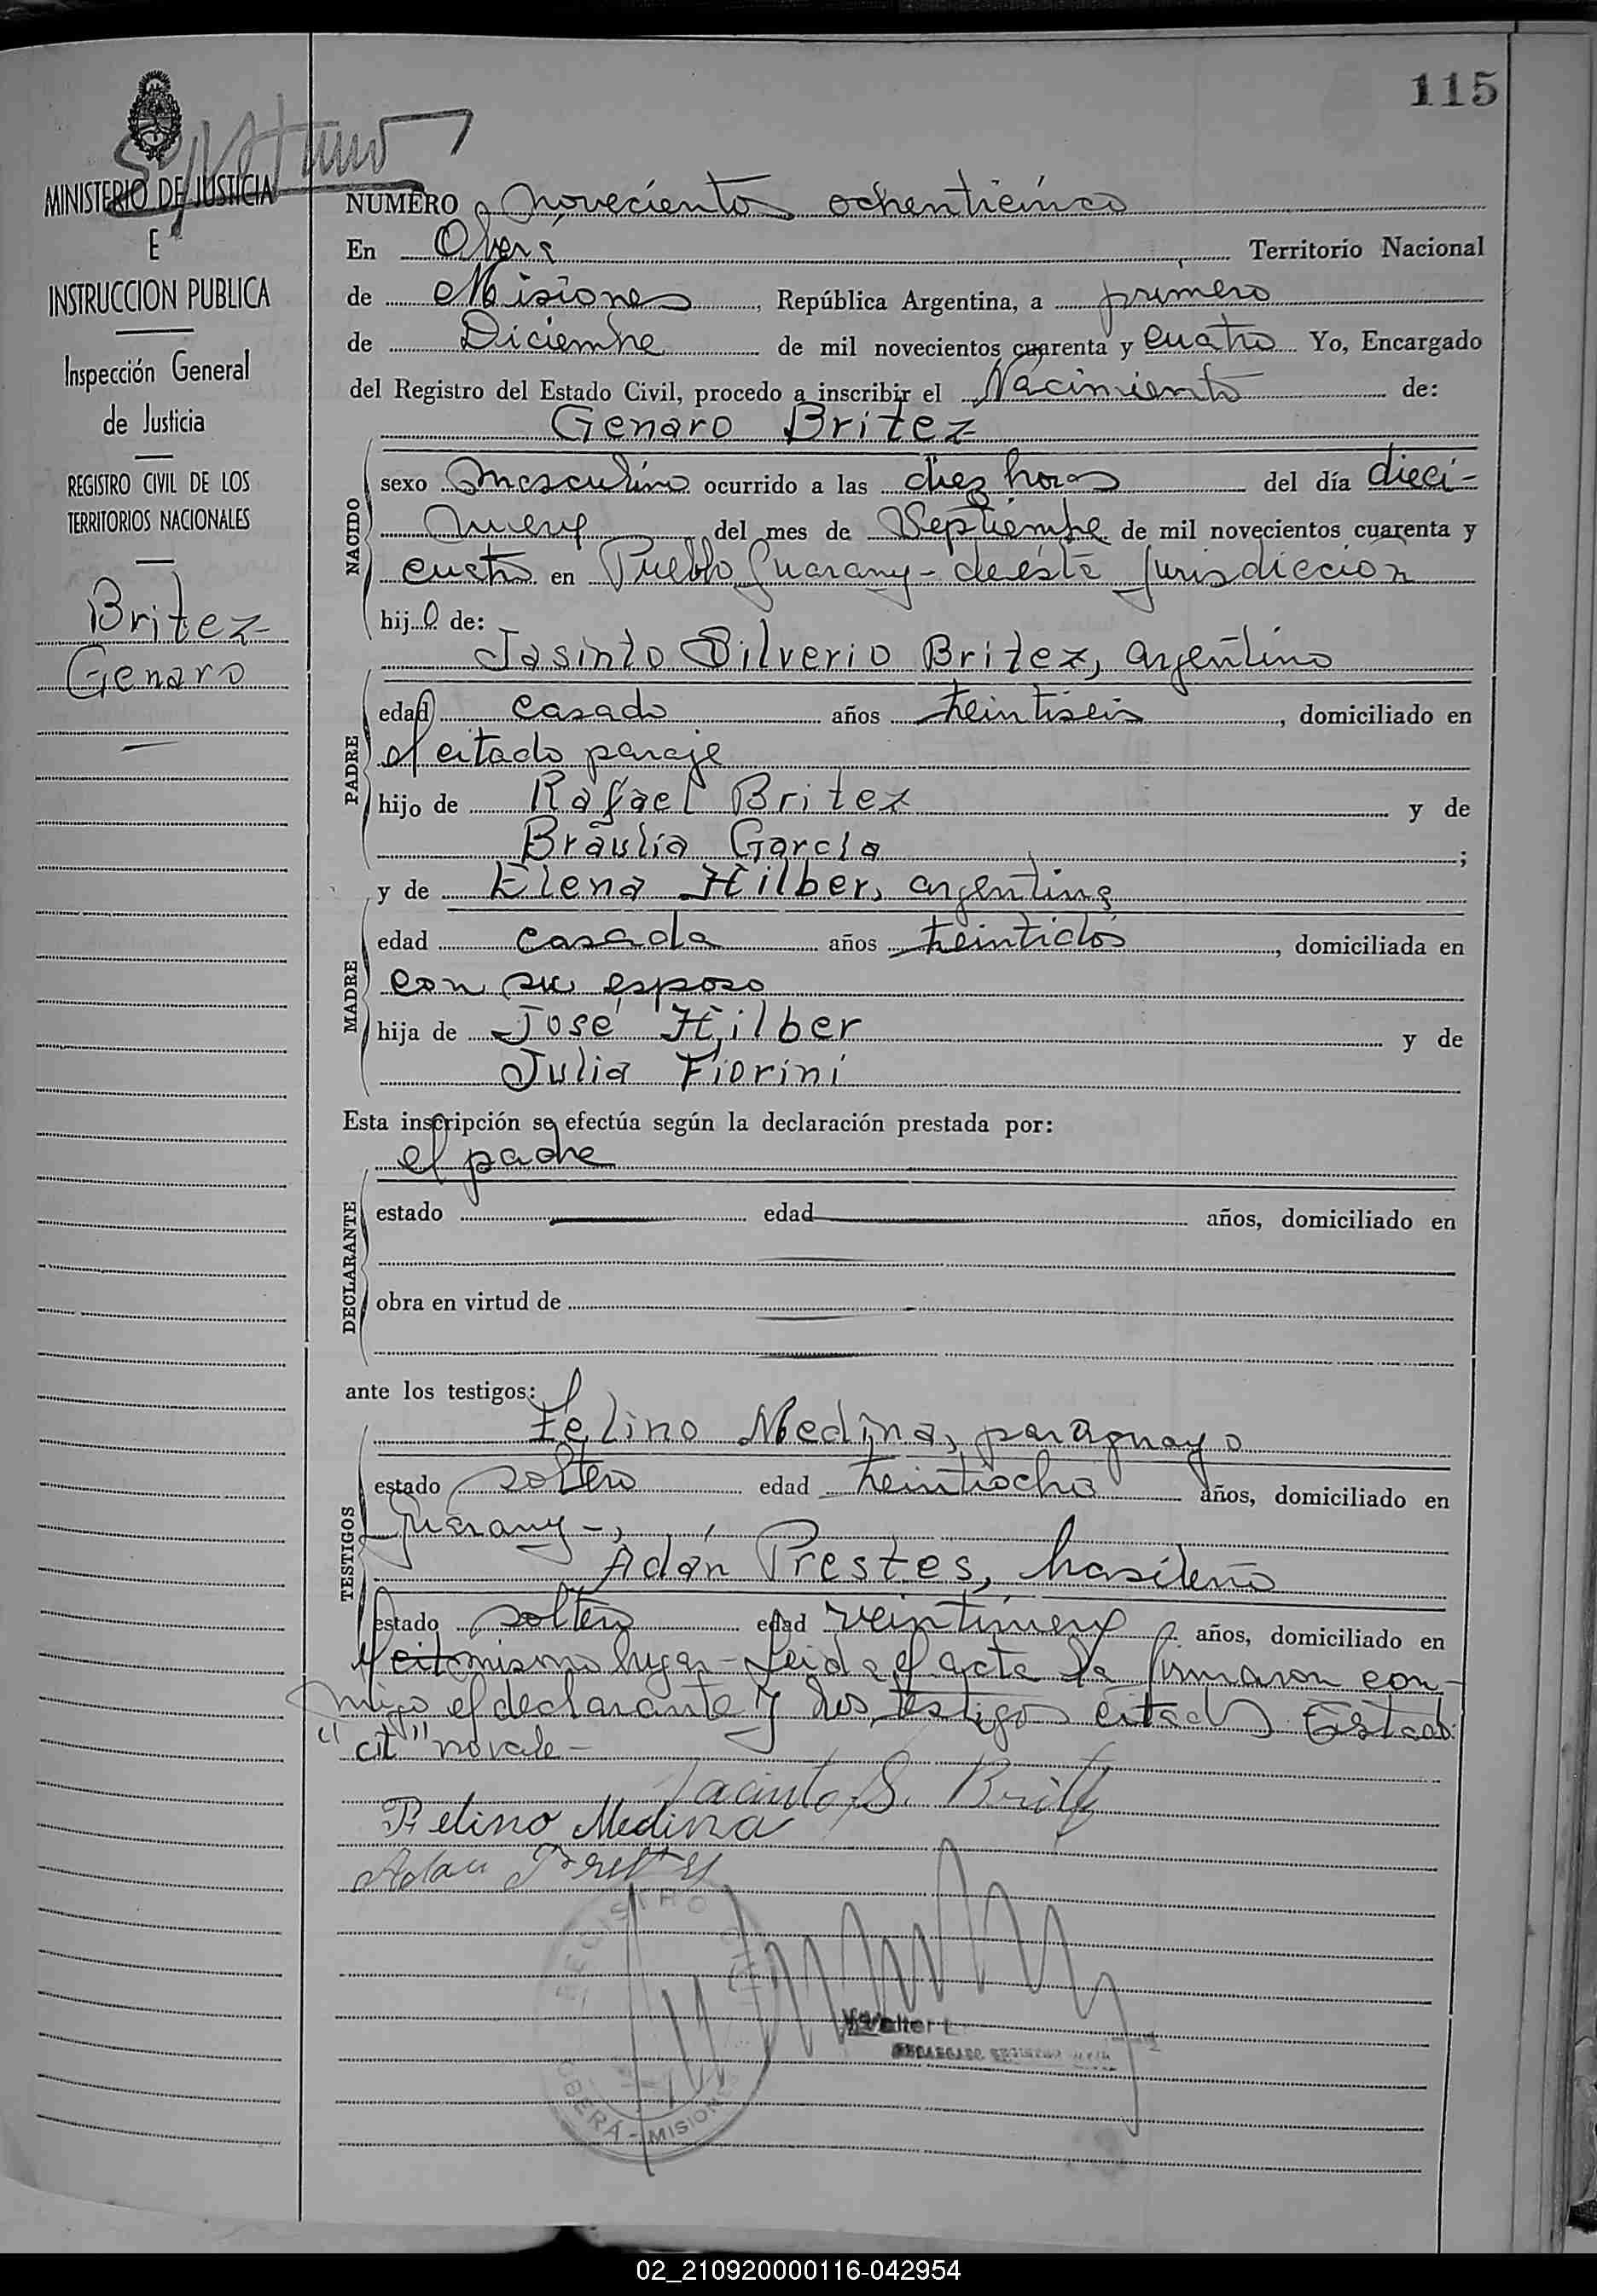 115
MINISTERIO DE JUSTICIA
E
INSTRUCCION PUBLICA
Inspección General
de Justicia
REGISTRO CIVIL DE LOS
TERRITORIOS NACIONALES
Britez
Genaro
NUMERO novecientos ochenticinco
En Oberá Territorio Nacional
de Misiones, República Argentina, a primero
de Diciembre de mil novecientos cuarenta y cuatro Yo, Encargado
del Registro del Estado Civil, procedo a inscribir el Nacimiento de:
Genaro Britez
NACIDO
sexo masculino ocurrido a las diez horas del día dieci-
nueve del mes de Septiembre de mil novecientos cuarenta y
cuatro en Pueblo Guarany - de ésta jurisdiccion
hijo de:
Jasinto Silverio Britez, argentino
PADRE
edad casado años treintiseis, domiciliado en
el citado paraje
hijo de Rafael Britez y de
Braulia Garcia;
y de Elena Hilber, argentina
MADRE
edad casada años treintidós, domiciliada en
con su esposo
hija de José Hilber y de
Julia Fiorini
Esta inscripción se efectúa según la declaración prestada por:
el padre
DECLARANTE
estado edad años, domiciliado en
obra en virtud de
ante los testigos:
Felino Medina, paraguayo
TESTIGOS
estado soltero edad treintiocho años, domiciliado en
Guarany -,
Adán Prestes, brasileño
estado soltero edad veintinueve años, domiciliado en
el cit mismo lugar - Leida el acta la firmaron con-
migo el declarante y los testigos citados Testado:
"cit" no vale -
Jacinto S. Britez
Felino Medina
Adan Prestes
REGISTRO
Walter L.
ENCARGADO REGISTRO CIVIL
OBERÁ - MISIONES
02_210920000116-042954